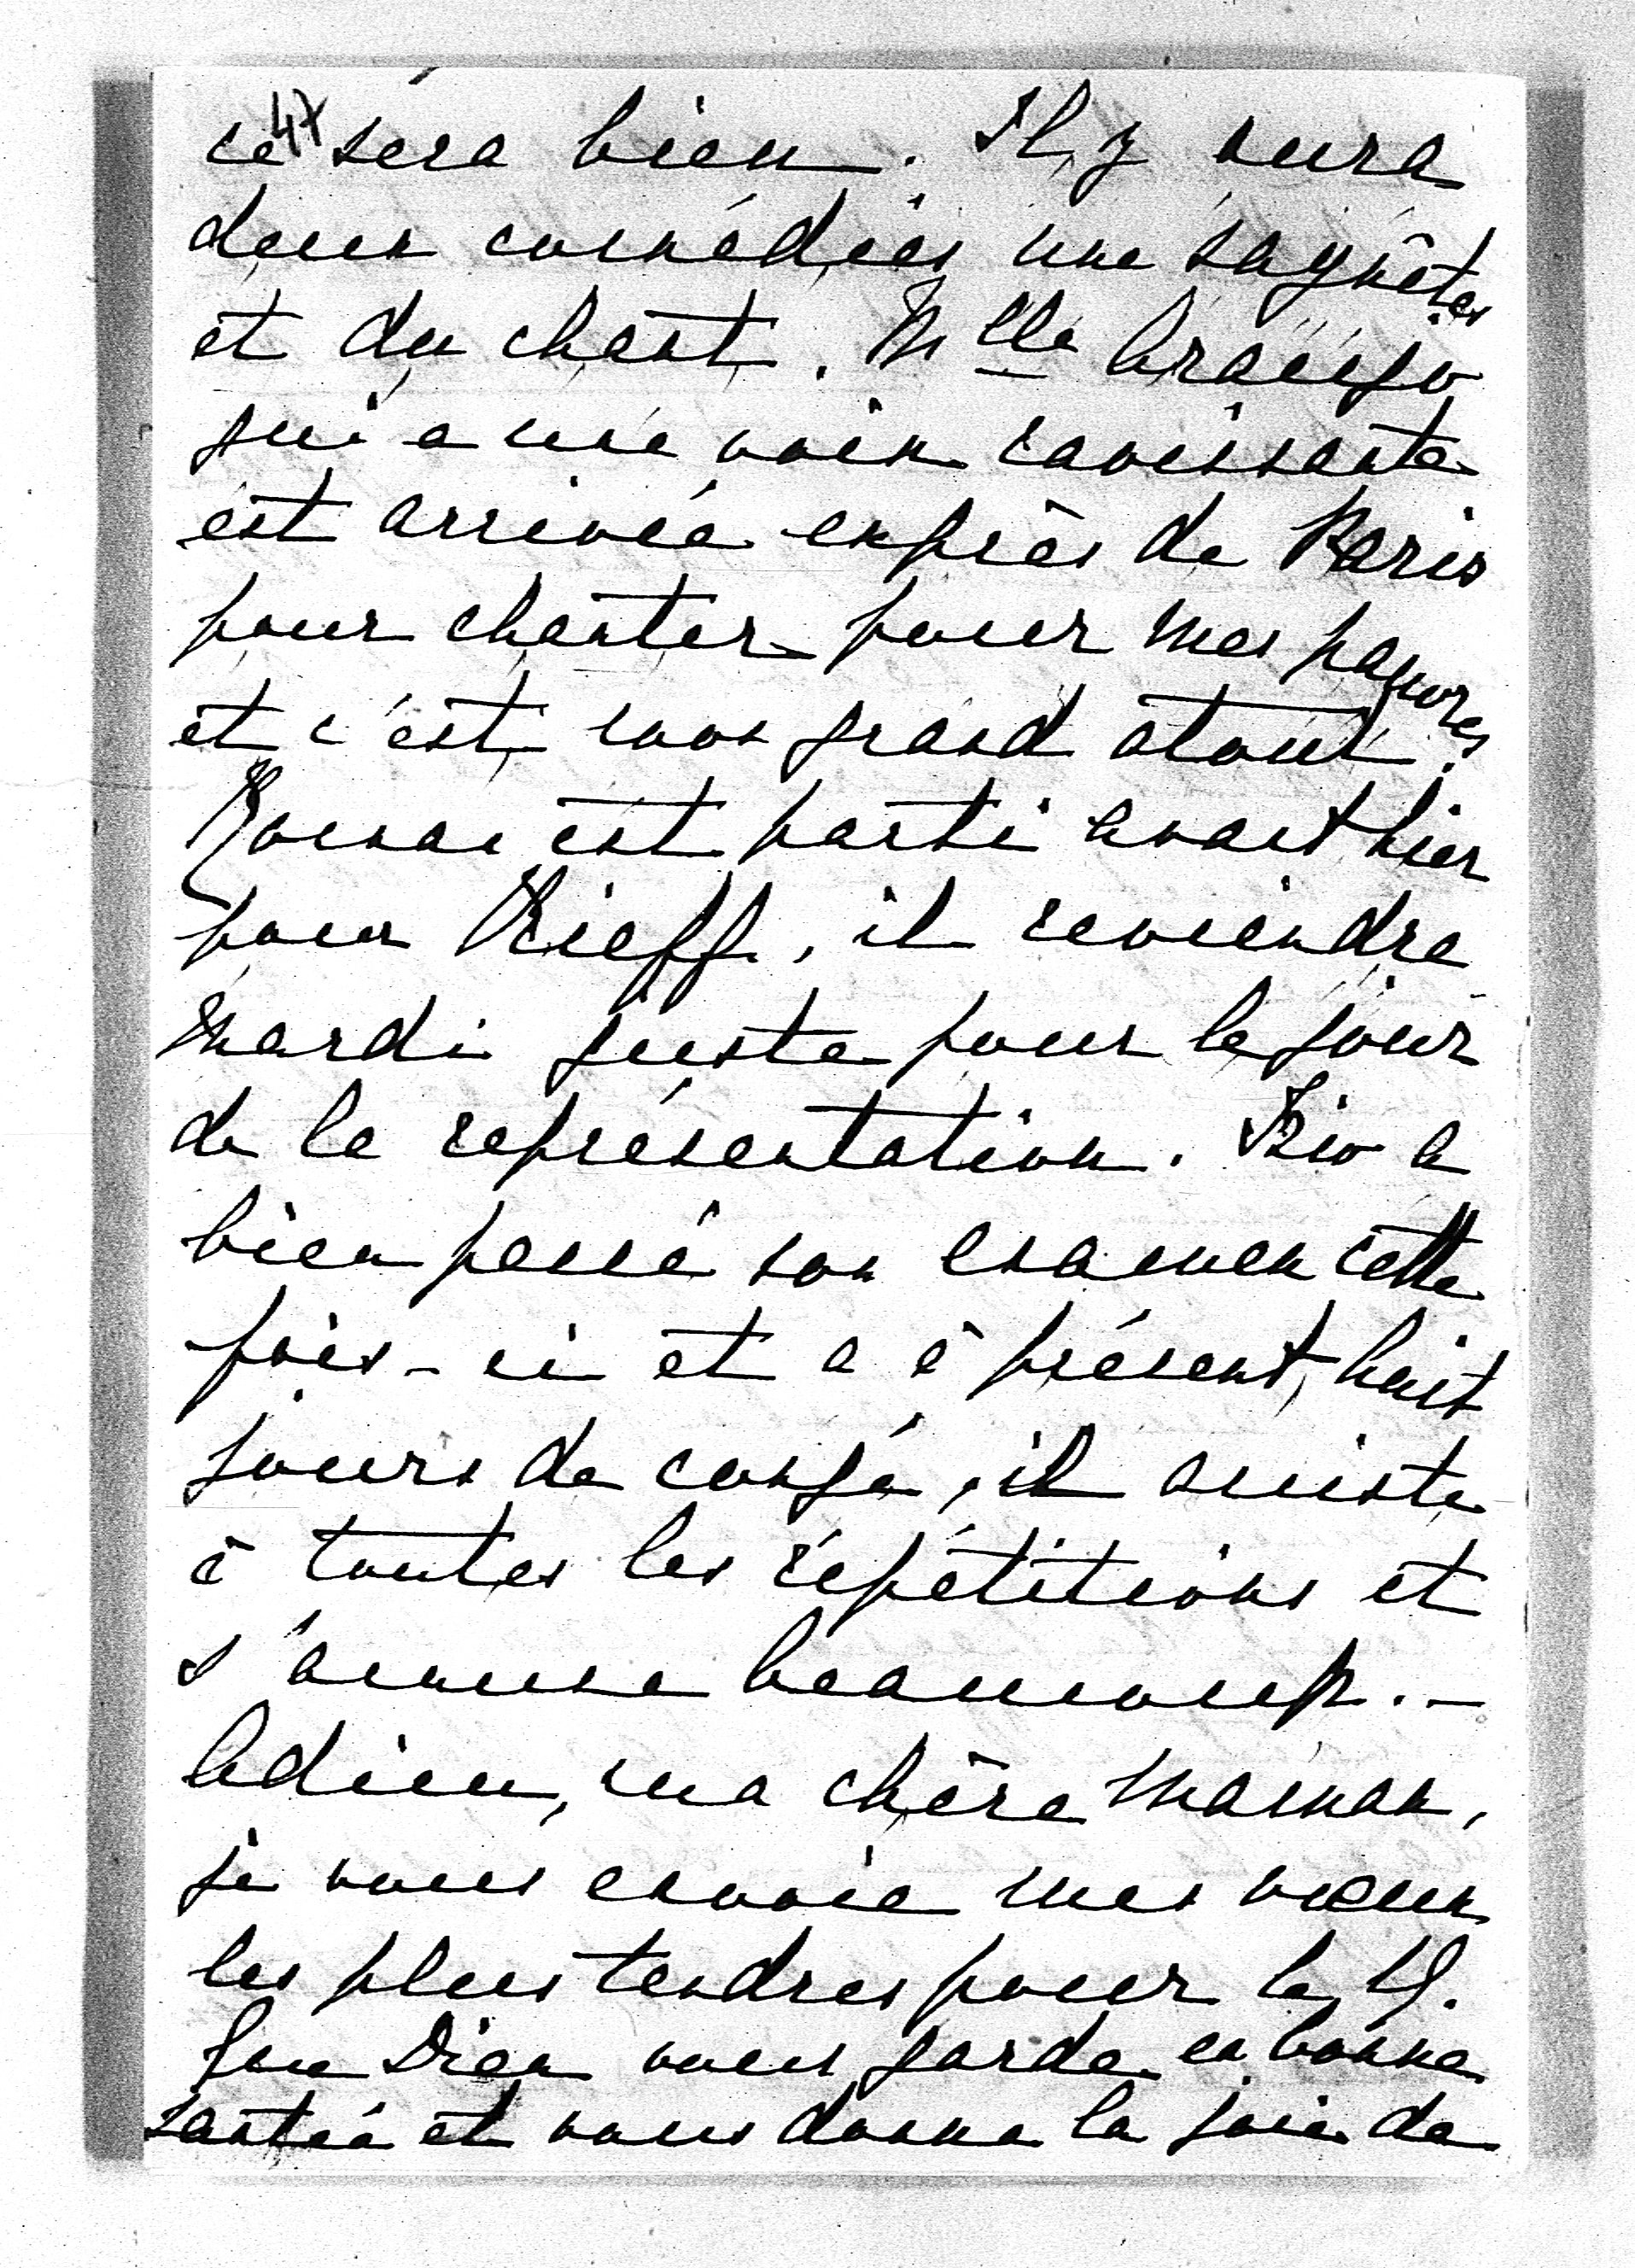 47
ce sera bien. Il y aura
deux comédies une saynètes
et du chant. Mlle Araujo
qui a une voix ravissante
est arrivée exprès de Paris
pour chanter pour mes pauvres
et c'est mon grand atout.
est parti avant hier
pour Kieff, il reviendra
mardi juste pour le jour
de la représentation. a
bien passé son examen cette
fois-ci et a à présent huit
jours de congé, il assiste
à toutes les répétitions et
s'amuse beaucoup. -
Adieu, ma chère Maman,
je vous envoie mes vœux
les plus tendres pour le
Que Dieu vous garde en bonne
santé et vous donne la joie de